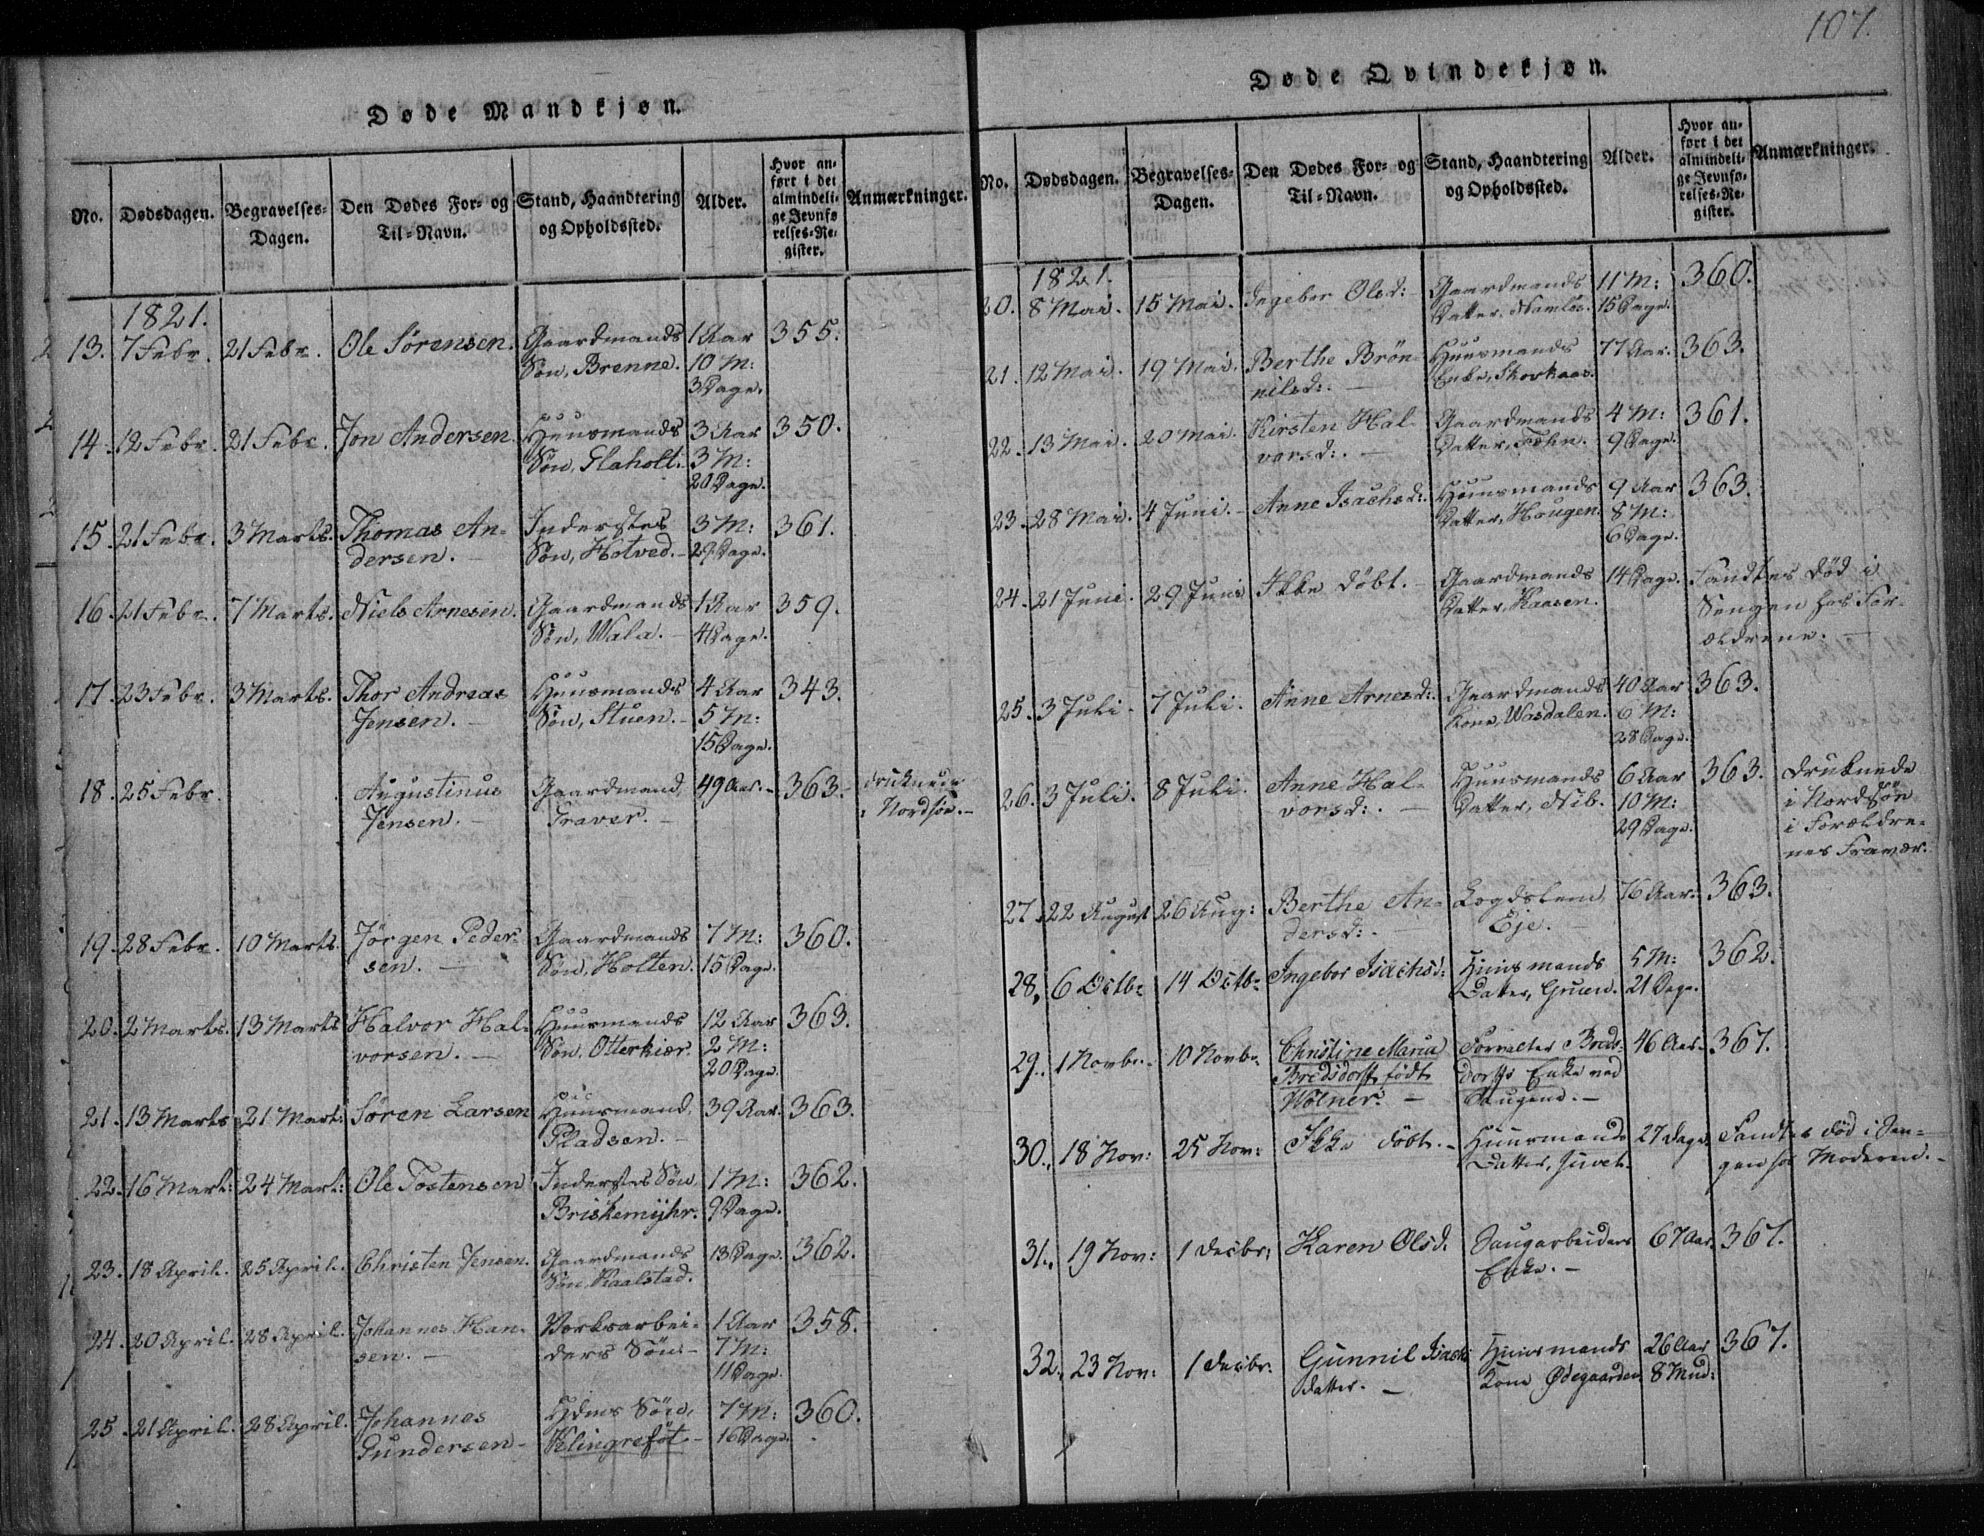 107.
Døde Mandkjøn.
No. Dødsdagen. Begravelses-Dagen. Den Dødes For- og Til-Navn. Stand, Haandtering og Opholdssted. Alder. Hvor anført i det almindelige Jevnførelses-Register. Anmærkninger.
1821.
13. 7 Febr. 21 Febr. Ole Sørensen. Gaardmands 1 Aar 355.
Søn, Brenne. 10 M:
3 Dage.
14. 12 Febr. 21 Febr. Jon Andersen. Huusmands 3 Aar 350.
Søn, Flaholt. 3 M:
20 Dage.
15. 21 Febr. 3 Marts. Thomas An- Inderstes 3 M: 361.
dersen. Søn, Hotved. 29 Dage.
16. 21 Febr. 7 Marts. Niels Arnesen. Gaardmands 1 Aar 359.
Søn, Wala. 4 Dage.
17. 23 Febr. 3 Marts. Thor Andreas Huusmands 4 Aar 343.
Jensen. Søn, Stuen. 5 M:
15 Dage.
18. 25 Febr. Augustinus Gaardmand, 49 Aar. 363. druknede
Jensen. Traver. i Nordsiøe.
19. 28 Febr. 10 Marts. Jørgen Peder- Gaardmands 7 M: 360.
sen. Søn, Holten. 15 Dage.
20. 2 Marts. 13 Marts Halvor Hal- Huusmands 12 Aar 363.
vorsen. Søn, Otterkiær. 2 M:
20 Dage.
21. 13 Marts 21 Mart: Søren Larsen Huusmand, 39 Aar. 363.
Pladsen.
22. 16 Mart: 24 Mart: Ole Tostensen Inderstes Søn, 1 M: 362.
Briskemyhr. 9 Dage.
23. 18 April. 25 April. Christen Jensen. Gaardmands 13 Dage. 362.
Søn, Kaalstad.
24. 20 April. 28 April. Johannes Han- Verksarbei- 1 Aar 358.
sen. ders Søn 7 M:
11 Dage.
25. 21 April. 28 April. Johannes Hdms Søn, 7 M: 360.
Gundersen Klingrefôt 16 Dage.
Døde Qvindekjøn.
No. Dødsdagen. Begravelses-Dagen. Den Dødes For- og Til-Navn. Stand, Haandtering og Opholdssted. Alder. Hvor anført i det almindelige Jevnførelses-Register. Anmærkninger.
1821.
20. 8 Mai. 15 Mai. Ingebor Olsd: Gaardmands 11 M: 360.
Datter, Namløs. 15 Dage.
21. 12 Mai. 19 Mai. Berthe Brön- Huusmands 77 Aar. 363.
nilsd: Enke, Skorkaas.
22. 13 Mai. 20 Mai. Kirsten Hal- Gaardmands 4 M: 361.
vorsd: Datter, Fæhn. 9 Dage.
23. 28 Mai. 4 Juni. Anne Isachsd: Huusmands 9 Aar 363.
Datter, Hougen. 8 M:
6 Dage.
24. 21 Juni. 29 Juni Ikke døbt. Gaardmands 14 Dage. Fandtes død i
Datter, Kaasen. Sengen hos For-
ældrene.
25. 3 Juli. 7 Juli. Anne Arnesd: Gaardmands 40 Aar 363.
Kone, Wasdalen. 6 M:
28 Dage.
26. 3 Juli. 8 Juli. Anne Hal- Huusmands 6 Aar 363. Druknede
vorsd: Datter, Nib. 10 M: i Nordsøn
29 Dage. i Forældre-
nes Fravær.
27. 22 August 26 Aug: Berthe An- Logdslem 76 Aar. 363.
dersd: Eje.
28. 6 Octbr 14 Octbr Ingebor Isachsd: Huusmands 5 M: 362.
Datter, Gruen. 21 Dage.
29. 1 Novbr. 10 Novbr. Christine Maria Forvalter Breds- 46 Aar. 367.
Bredsdorff, født dorffs Enke ved
Wølner. Saugene.
30. 18 Nov: 25 Nov: Ikke døbt. Huusmands 27 Dage Fandtes død i Sen-
Datter, Juvet. gen hos Moderen.
31. 19 Nov: 1 Decbr: Karen Olsd. Saugarbeiders 67 Aar. 367.
Enke.
32. 23 Nov: 1 Decbr. Gunnil Isachs Huusmands 26 Aar 367.
datter. Kone Ødegaarden 8 Mnd: